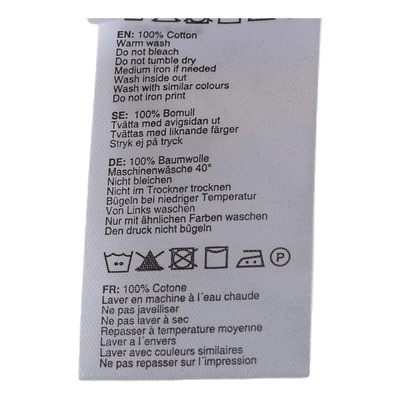 EN: 100% Cotton
Warm wash
Do not bleach
Do not tumble dry
Medium iron if needed
Wash inside out
Wash with similar colours
Do not iron print
SE: 100% Bomull
Tvätta med avigsidan ut
Tvättas med liknande färger
Stryk ej på tryck
DE: 100% Baumwolle
Maschinenwäsche 40°
Nicht bleichen
Nicht im Trockner trocknen
Bügeln bei niedriger Temperatur
Von Links waschen
Nur mit ähnlichen Farben waschen
Den druck nicht bügeln
P
FR: 100% Cotone
Laver en machine à l´eau chaude
Ne pas javeiliser
Ne pas laver à sec
Repasser à température moyenne
Laver a l´envers
Laver avec couleurs similaires
Ne pas repasser sur l´impression